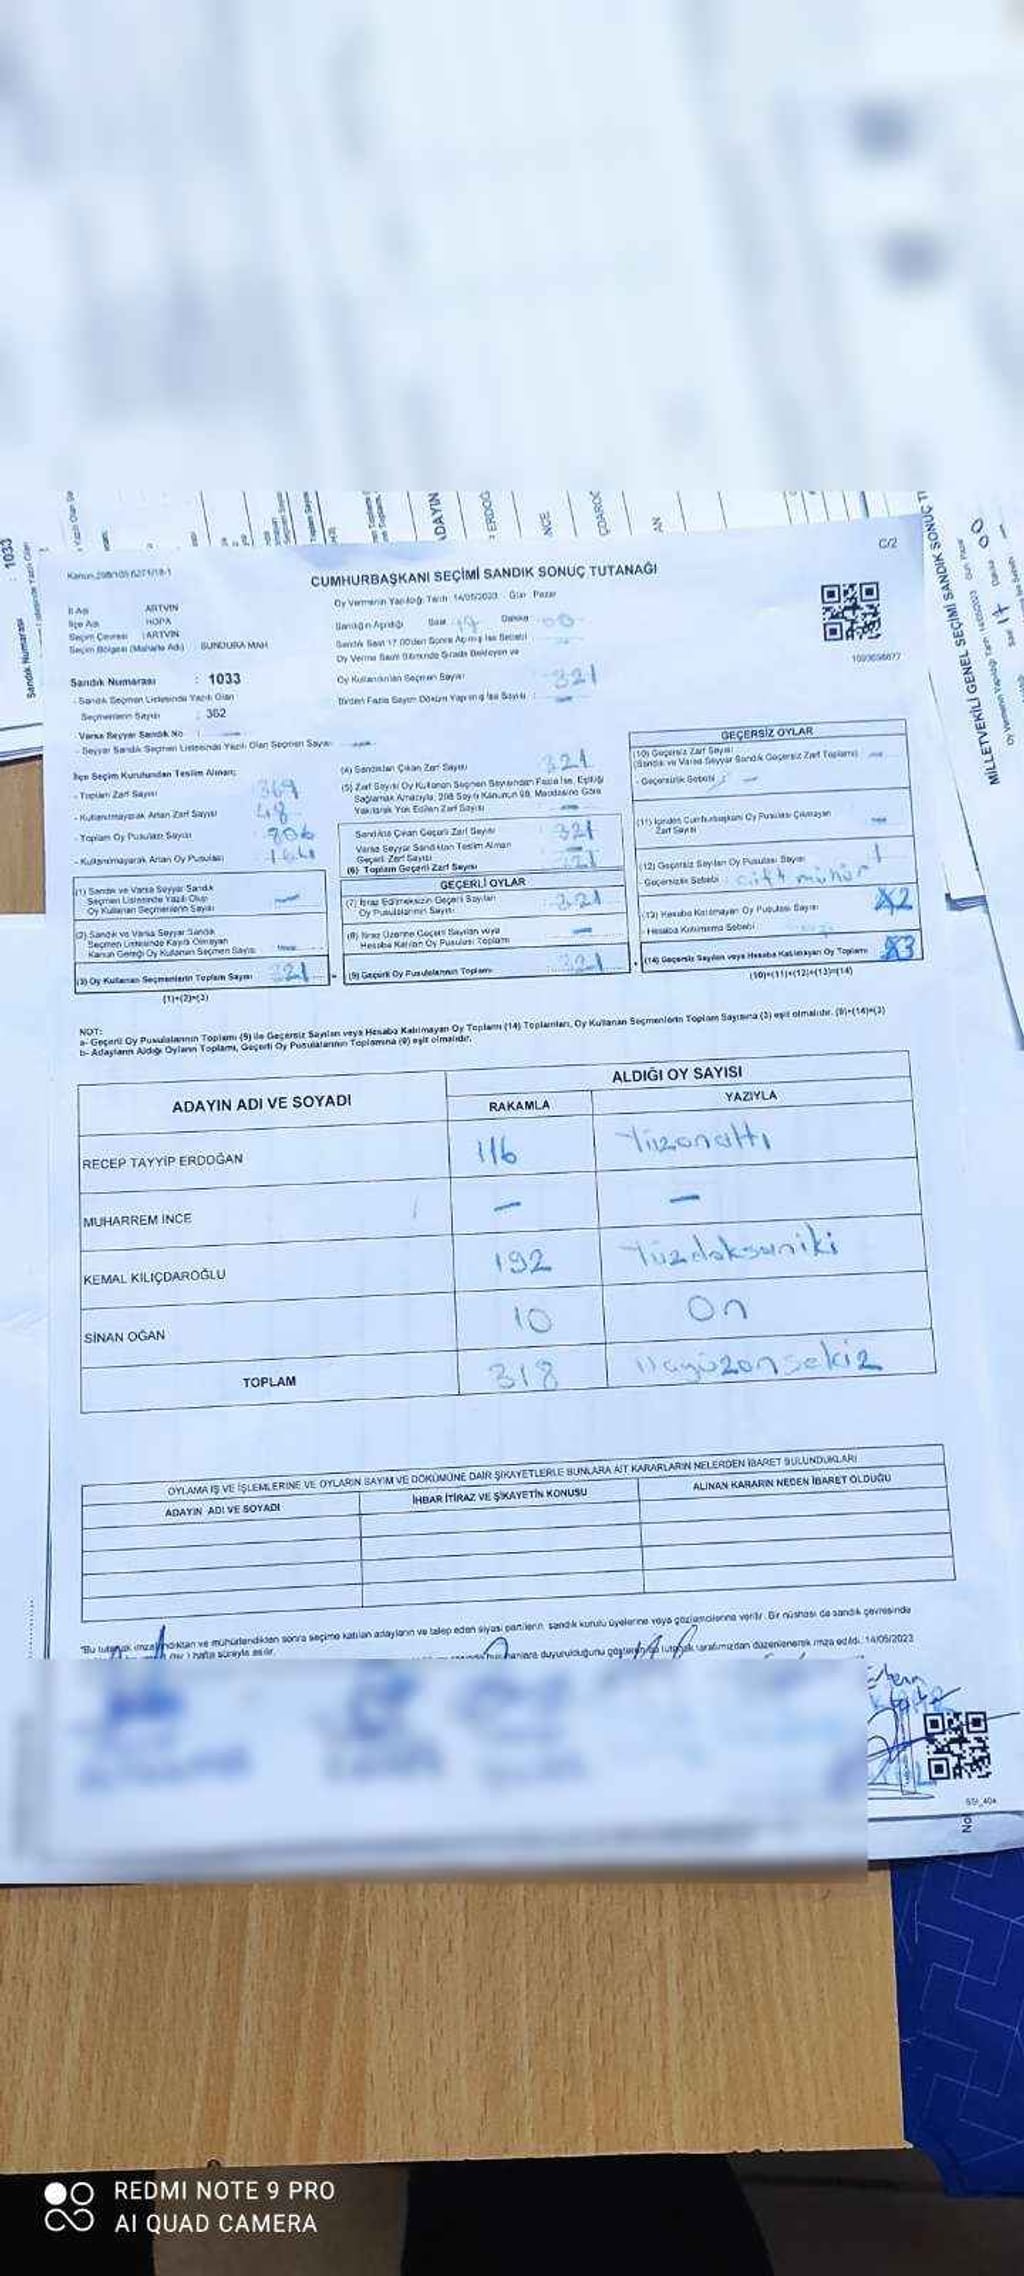 1033
Sandık Numarası
ADAYIN
ERDOĞ
NCE
ÇDAROĞ
AN
C/2
CUMHURBAŞKANI SEÇİMİ SANDIK SONUÇ TUTANAĞI
İl Adı ARTVİN
İlçe Adı HOPA
Seçim Çevresi : ARTVİN
Seçim Bölgesi (Mahalle Adı) SUNDURA MAH
Oy Vermenin Yapıldığı Tarih 14/05/2023 Gün Pazar
Sandığın Açıldığı Saat 17 Dakika 00
Sandık Saat 17.00'den Sonra Açılmış İse Sebebi
Oy Verme Saati Bitiminde Sırada Bekleyen ve
Oy Kullandırılan Seçmen Sayısı 321
Birden Fazla Sayım Döküm Yapılmış İse Sayısı : -
Sandık Numarası : 1033
- Sandık Seçmen Listesinde Yazılı Olan
Seçmenlerin Sayısı : 362
- Varsa Seyyar Sandık No
- Seyyar Sandık Seçmen Listesinde Yazılı Olan Seçmen Sayısı
İlçe Seçim Kurulundan Teslim Alınan;
- Toplam Zarf Sayısı 369
- Kullanılmayarak Artan Zarf Sayısı 48
- Toplam Oy Pusulası Sayısı 806
- Kullanılmayarak Artan Oy Pusulası
(1) Sandık ve Varsa Seyyar Sandık
Seçmen Listesinde Yazılı Olup
Oy Kullanan Seçmenlerin Sayısı
(2) Sandık ve Varsa Seyyar Sandık
Seçmen Listesinde Kayıtlı Olmayan
Kanun Gereği Oy Kullanan Seçmen Sayısı
(3) Oy Kullanan Seçmenlerin Toplam Sayısı 321
(1)+(2)=(3)
(4) Sandıktan Çıkan Zarf Sayısı 321
(5) Zarf Sayısı Oy Kullanan Seçmen Sayısından Fazla İse, Eşitliği
Sağlamak Amacıyla, 298 Sayılı Kanunun 98. Maddesine Göre
Yakılarak Yok Edilen Zarf Sayısı -
Sandıkta Çıkan Geçerli Zarf Sayısı 321
Varsa Seyyar Sandıktan Teslim Alınan
Geçerli Zarf Sayısı
(6) Toplam Geçerli Zarf Sayısı 321
GEÇERLİ OYLAR
(7) İtiraz Edilmeksizin Geçerli Sayılan
Oy Pusulalarının Sayısı 321
(8) İtiraz Üzerine Geçerli Sayılan veya
Hesaba Katılan Oy Pusulası Toplamı -
(9) Geçerli Oy Pusulalarının Toplamı 321
GEÇERSİZ OYLAR
(10) Geçersiz Zarf Sayısı
(Sandık ve Varsa Seyyar Sandık Geçersiz Zarf Toplamı) -
- Geçersizlik Sebebi -
(11) İçinden Cumhurbaşkanı Oy Pusulası Çıkmayan
Zarf Sayısı -
(12) Geçersiz Sayılan Oy Pusulası Sayısı 1
- Geçersizlik Sebebi : çift mühür
(13) Hesaba Katılmayan Oy Pusulası Sayısı 2
- Hesaba Katılmama Sebebi :
(14) Geçersiz Sayılan veya Hesaba Katılmayan Oy Toplamı 3
(10)+(11)+(12)+(13)=(14)
NOT:
a- Geçerli Oy Pusulalarının Toplamı (9) ile Geçersiz Sayılan veya Hesaba Katılmayan Oy Toplamı (14) Toplamları, Oy Kullanan Seçmenlerin Toplam Sayısına (3) eşit olmalıdır. (9)+(14)=(3)
b- Adayların Aldığı Oyların Toplamı, Geçerli Oy Pusulalarının Toplamına (9) eşit olmalıdır.
ADAYIN ADI VE SOYADI ALDIĞI OY SAYISI
RAKAMLA YAZIYLA
RECEP TAYYİP ERDOĞAN 116 Yüzonaltı
MUHARREM İNCE - -
KEMAL KILIÇDAROĞLU 192 Yüzdoksaniki
SİNAN OĞAN 10 On
TOPLAM 318 Üçyüzonsekiz
OYLAMA İŞ VE İŞLEMLERİNE VE OYLARIN SAYIM VE DÖKÜMÜNE DAİR ŞİKAYETLERLE BUNLARA AİT KARARLARIN NELERDEN İBARET BULUNDUKLARI
ADAYIN ADI VE SOYADI İHBAR İTİRAZ VE ŞİKAYETİN KONUSU ALINAN KARARIN NEDEN İBARET OLDUĞU
MİLLETVEKİLİ GENEL SEÇİMİ SANDIK SONUÇ T
Oy Vermenin Yapıldığı Tarih 14/05/2023 Gün Pazar
Saat 17 Dakika 00
REDMI NOTE 9 PRO
AI QUAD CAMERA